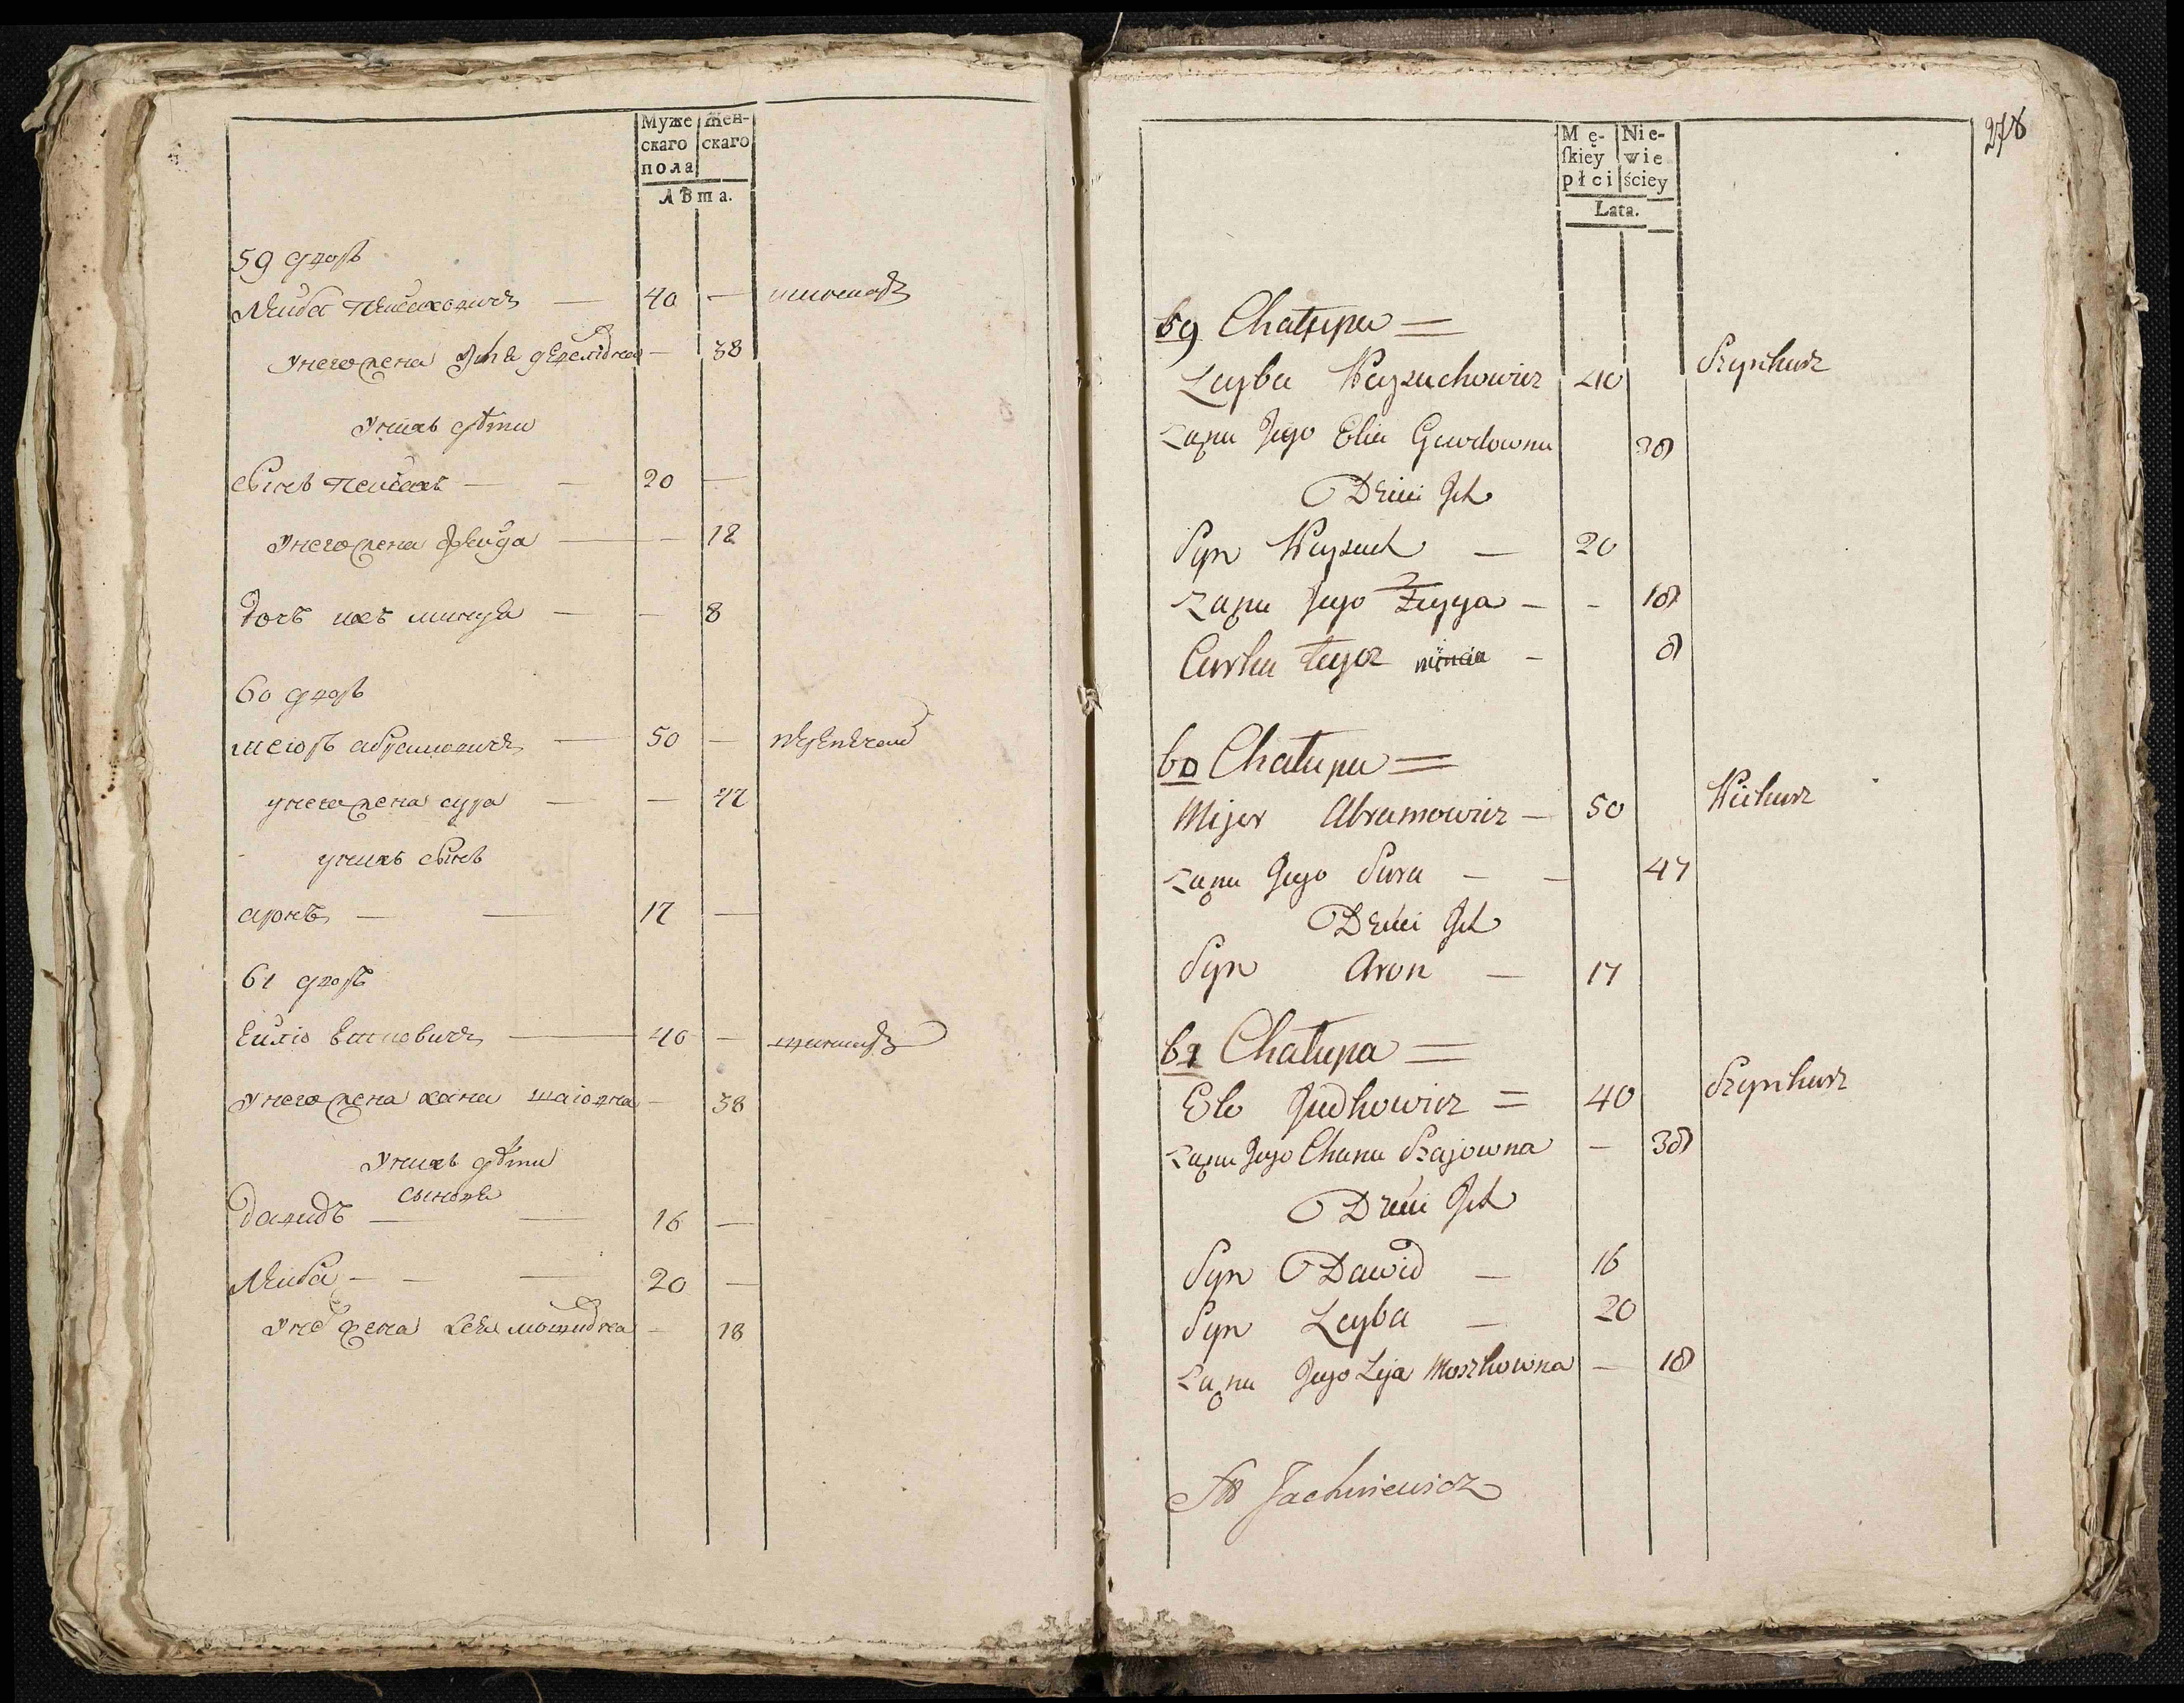 Муже
скаго
пола
Жен-
скаго
Лѣта.
59 дворъ
Лейба Пейсаховичъ — 40 — шинкаръ
У него жена — 38
У нихъ дѣти
Сынъ Пейсахъ — — 20 —
У него жена Фейга — — 18
Дочь ихъ Минця — — 8
60 дворъ
Меіоръ Абрамовичъ — 50 —
у него жена Сура — — 47
у нихъ сынъ
Аронъ — — 17 —
61 дворъ
Ейлю — 40 — шинкаръ
У него жена Хана Шаiовна — 38
У нихъ дѣти
сыновя
Давидъ — — 16 —
Лейба — — — 20 —
У него жена Лея Мошковна — 18
278
Mę-
ſkiey
płci
Nie-
wie
ściey
Lata.
59 Chałupa =
Leyba Peysachowicz 40 Szynkarz
Żona Jego Elia 38
Dzieci Jch
Syn Peysach — 20
Żona Jego Feyga — - 18
Curka teyoz Mincia — 8
60 Chałupa =
Mijer Abramowicz — 50 Piekarz
Żona Jego Sura — — 47
Dzieci Jch
Syn Aron — 17
61 Chałupa =
Elo Judkowicz = 40 Szynkarz
Żona Jego Chana Szajowna — 38
Dzieci Jch
Syn Dawid — 16
Syn Leyba — 20
Żona Jego Leja Moszkowna — 18
Jachniewicz